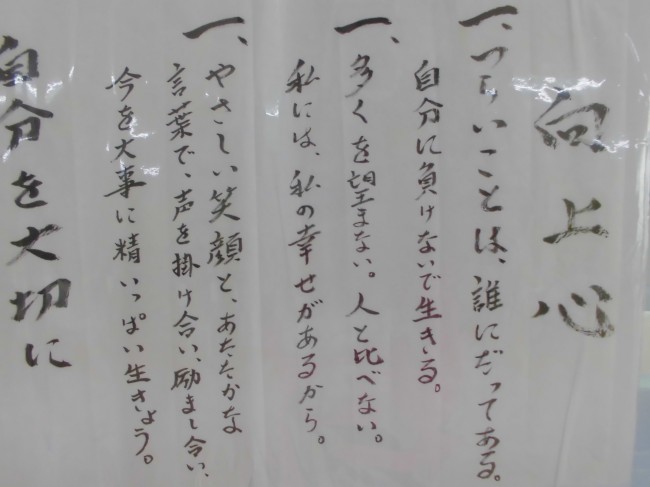 向上心
一、つらいことは、誰にだってある。
自分に負けないで生きる。
一、多くを望まない。人と比べない。
私には、私の幸せがあるから。
一、やさしい笑顔と、あたたかな
言葉で、声を掛け合い、励まし合い、
今を大事に精いっぱい生きよう。
自分を大切に